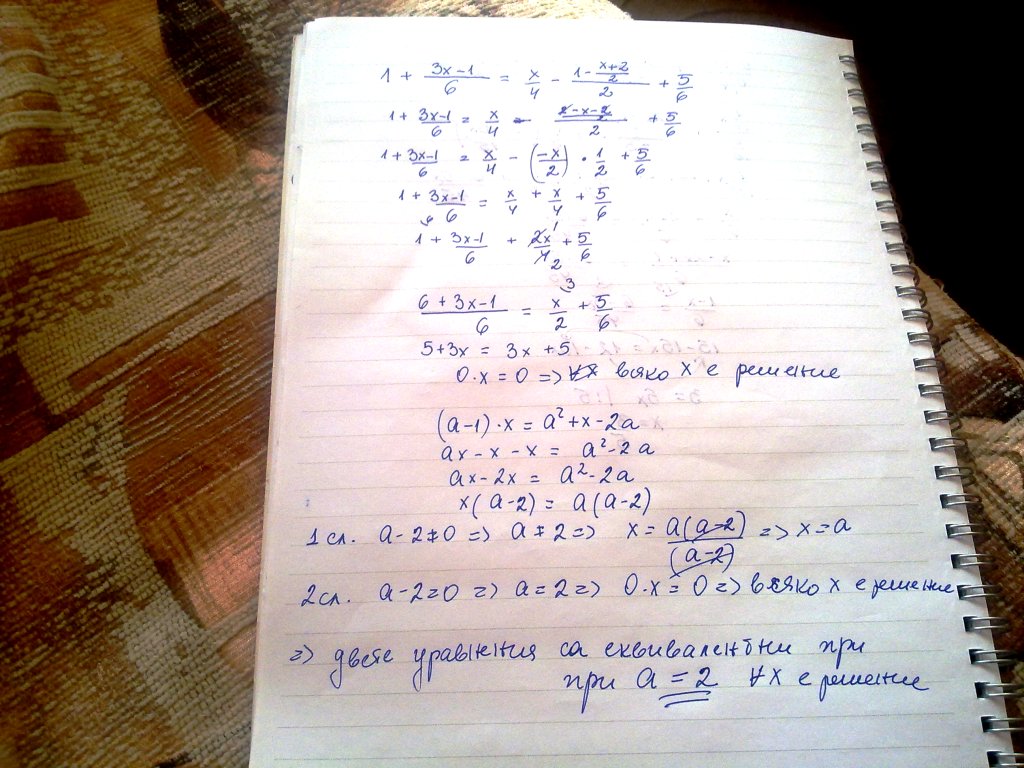 1 + (3x-1)/6 = x/4 - (1 - (x+2)/2)/2 + 5/6
1 + (3x-1)/6 = x/4 - ((2-x-2)/2)/2 + 5/6
1 + (3x-1)/6 = x/4 - (-x/2) · 1/2 + 5/6
1 + (3x-1)/6 = x/4 + x/4 + 5/6
1 + (3x-1)/6 + 2x/4 + 5/6
(6+3x-1)/6 = x/2 + 5/6
5+3x = 3x+5
0.x = 0 => ∀x всяко x е решение
(a-1).x = a²+x-2a
ax-x-x = a²-2a
ax-2x = a²-2a
x(a-2) = a(a-2)
1сл. a-2≠0 => a≠2 => x = a(a-2)/(a-2) => x=a
2сл. a-2=0 => a=2 => 0.x=0 => всяко x е решение
=> двете уравнения са еквивалентни при
при a = 2 ∀x е решение